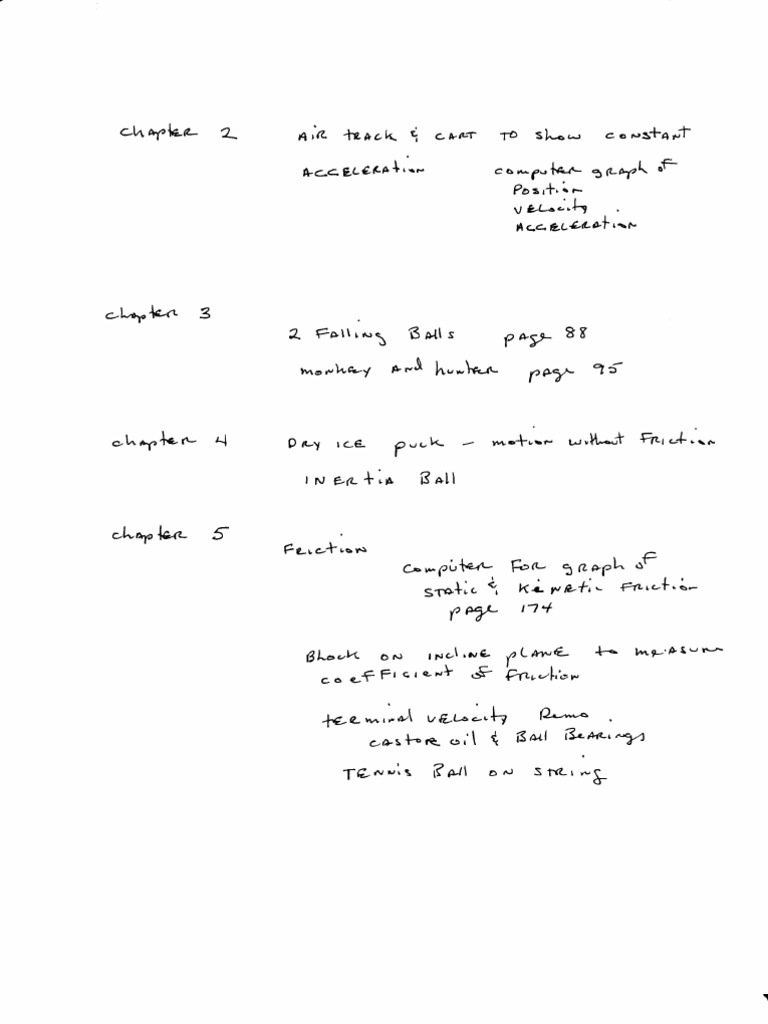 Chapter 2 AIR TRACK & CART TO SHOW CONSTANT
ACCELERATION computer graph of
Position
Velocity
ACCELERATION
Chapter 3
2 Falling Balls page 88
monkey and hunter page 95
chapter 4 DRY ICE puck - motion without Friction
INERTIA Ball
chapter 5
Friction
computer For graph of
STATIC & Kinetic FRICTION
page 174
Block on incline plane to measure
coefficient of friction
terminal velocity Demo
castor oil & Ball Bearings
TENNIS Ball on STRING